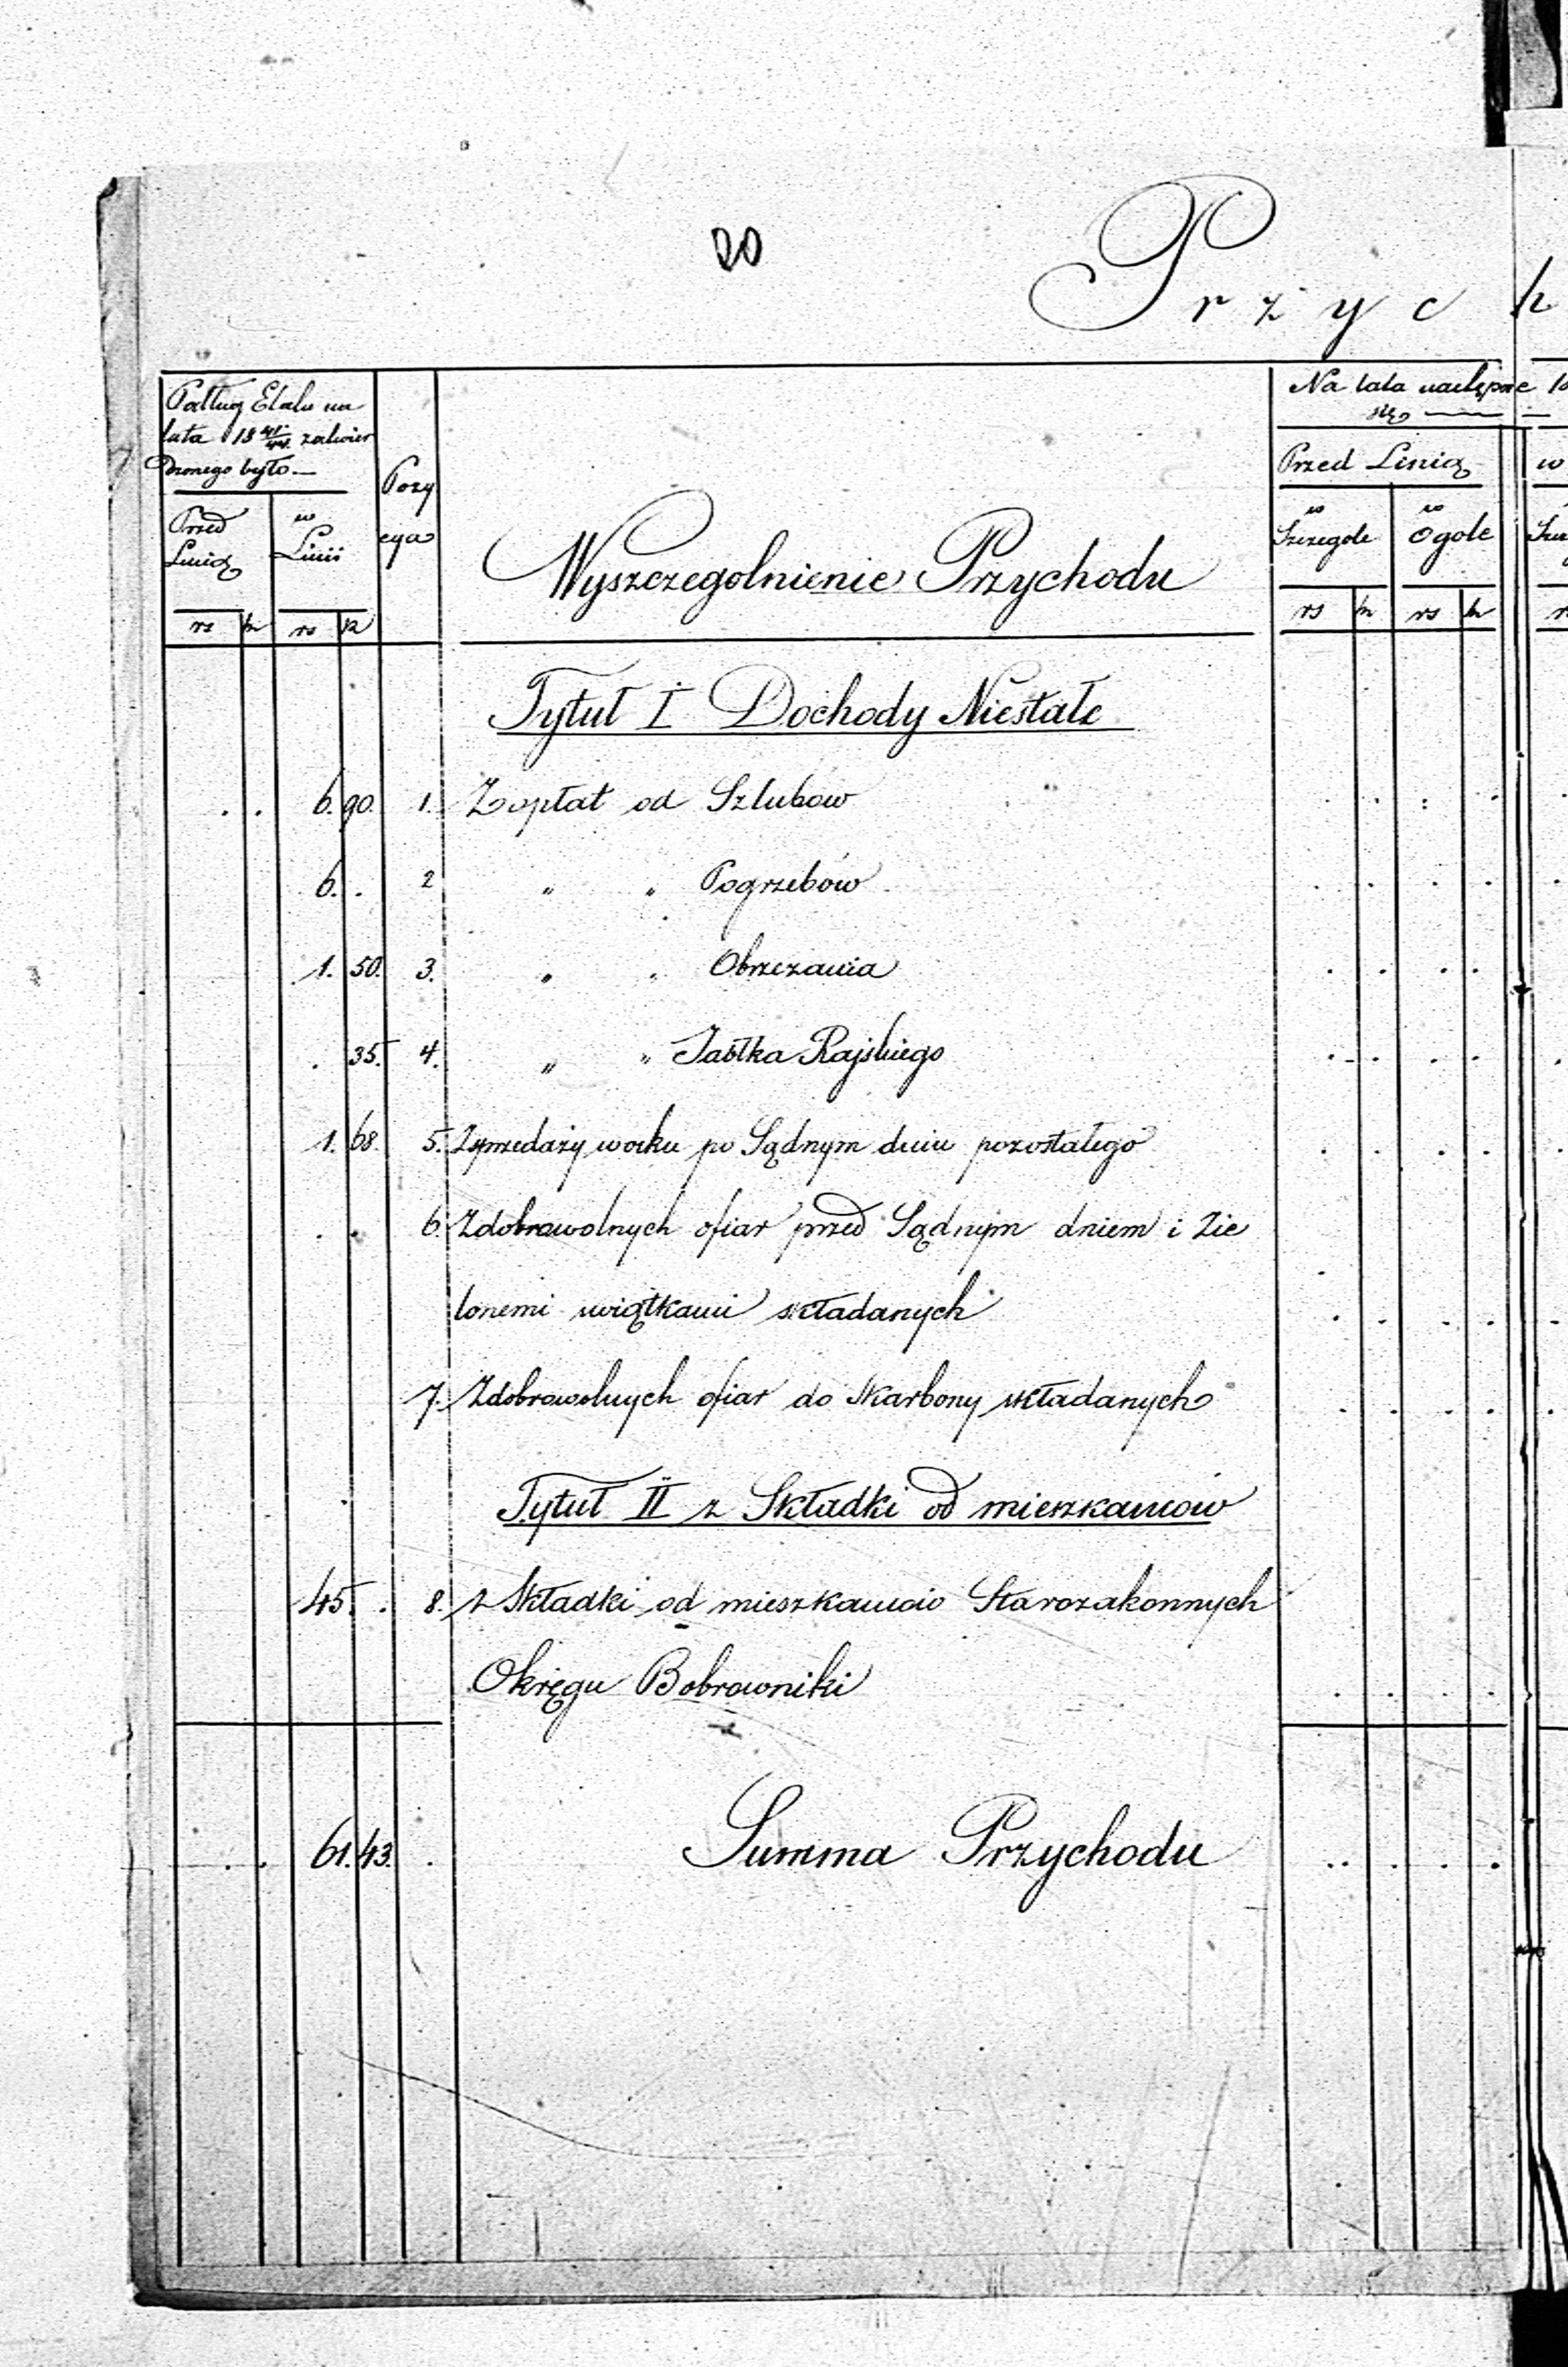 20
Przych
Podług Etatu na
lata 18 41/44 zatwier
dzonego było —
Przed
Linią
w
Linii
Pozy
cya
Wyszczegolnienie Przychodu
Na lata następne
się
Przed Linią
w
w
Szczegole
w
Ogole
rs k rs k
rs k rs k
Tytuł I Dochody Niestałe
. . 6. 90. 1. Z opłat od Szlubow
6. . 2 " " Pogrzebów
1. 50. 3. " " Obrzezania
. 35. 4. " " Jabłka Rajskiego
1. 68. 5. Z sprzedaży wosku po Sądnym dniu pozostałego
. . 6. Z dobrowolnych ofiar przed Sądnym dniem i Zie
lonemi swiątkami składanych
7. Z dobrowolnych ofiar do skarbony składanych
Tytuł II z Składki od mieszkancow
45. . 8. z Składki od mieszkancow Starozakonnych
Okręgu Bobrowniki
. . 61. 43. . Summa Przychodu